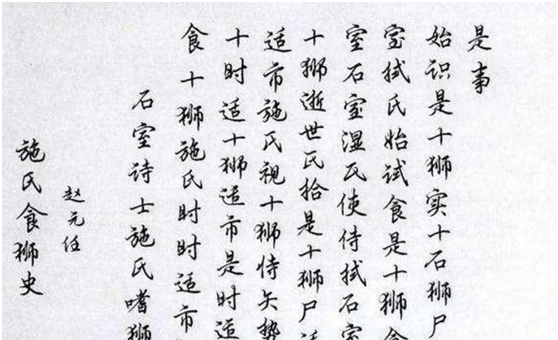 施氏食狮史
赵元任
石室诗士施氏嗜狮
食十狮施氏时时适市
十时适十狮适市是时适
适市施氏视十狮侍矢势
十狮逝世氏拾是十狮尸适
室石室湿氏使侍拭石室
室拭氏始试食是十狮食
始识是十狮实十石狮尸
是事